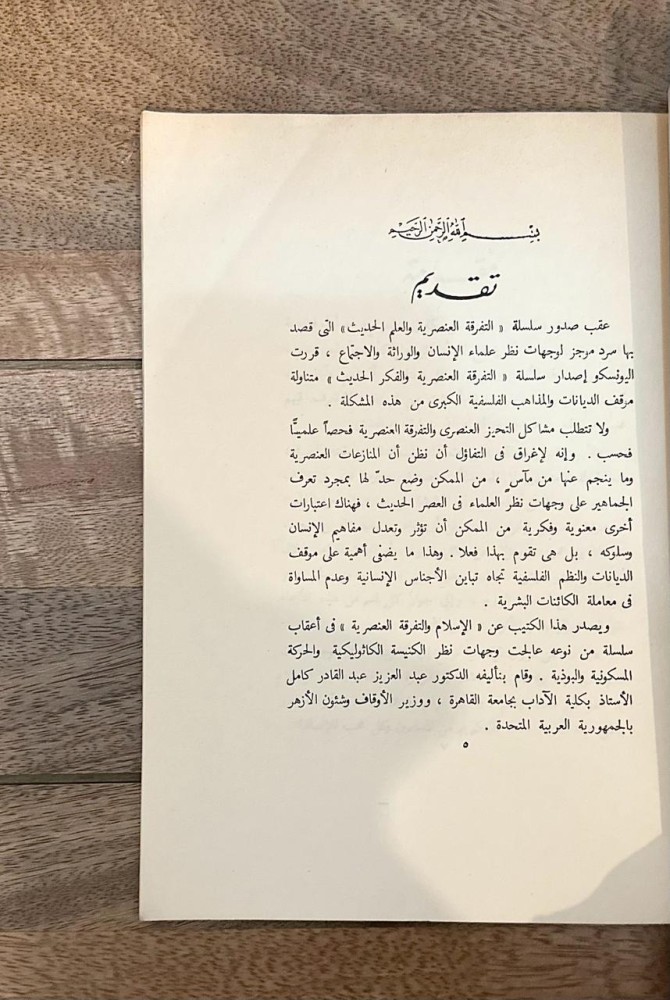 بسم الله الرحمن الرحيم
تقديم
عقب صدور سلسلة « التفرقة العنصرية والعلم الحديث» التى قصد
بها سرد موجز لوجهات نظر علماء الإنسان والوراثة والاجتماع ، قررت
اليونسكو إصدار سلسلة « التفرقة العنصرية والفكر الحديث» متناولة
موقف الديانات والمذاهب الفلسفية الكبرى من هذه المشكلة .
ولا تتطلب مشاكل التحيز العنصرى والتفرقة العنصرية فحصاً علميًّا
فحسب . وإنه لإغراق فى التفاؤل أن نظن أن المنازعات العنصرية
وما ينجم عنها من مآسٍ ، من الممكن وضع حدّ لها بمجرد تعرف
الجماهير على وجهات نظر العلماء فى العصر الحديث ، فهناك اعتبارات
أخرى معنوية وفكرية من الممكن أن تؤثر وتعدل مفاهيم الإنسان
وسلوكه ، بل هى تقوم بهذا فعلا . وهذا ما يضفى أهمية على موقف
الديانات والنظم الفلسفية تجاه تباين الأجناس الإنسانية وعدم المساواة
فى معاملة الكائنات البشرية .
ويصدر هذا الكتيب عن « الإسلام والتفرقة العنصرية » فى أعقاب
سلسلة من نوعه عالجت وجهات نظر الكنيسة الكاثوليكية والحركة
المسكونية والبوذية . وقام بتأليفه الدكتور عبد العزيز عبد القادر كامل
الأستاذ بكلية الآداب بجامعة القاهرة ، ووزير الأوقاف وشئون الأزهر
بالجمهورية العربية المتحدة .
٥